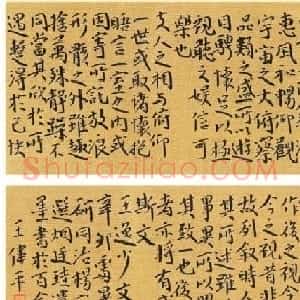 惠風和暢仰觀
宇宙之大俯察
品類之盛所以遊
目騁懷足以極
視聽之娛信可
樂也
夫人之相與俯仰
一世或取諸懷抱
晤言一室之內或
因寄所託放浪
形骸之外雖趣
捨萬殊靜躁不
同當其欣於所
遇暫得於己快
Shufaziliao.com
後之視
今之視昔
故列敘時
其所述雖
事異所以
其致也後
者亦將有
斯文
王逸少文
研同治楊
墨書於百
王偉平